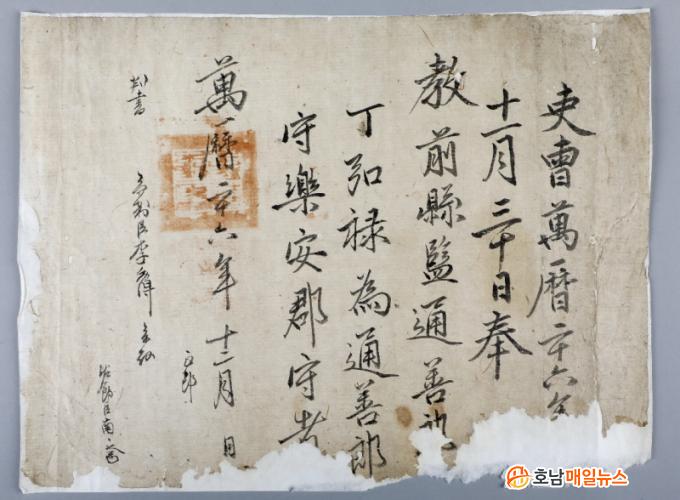 吏曹萬曆二十六年
十一月三十日奉
教前縣監通善郎
丁弘祿為通善郎
守樂安郡守者
萬曆二十六年十二月 日
判書 參判臣李
正郎
佐郎臣南
호남매일뉴스